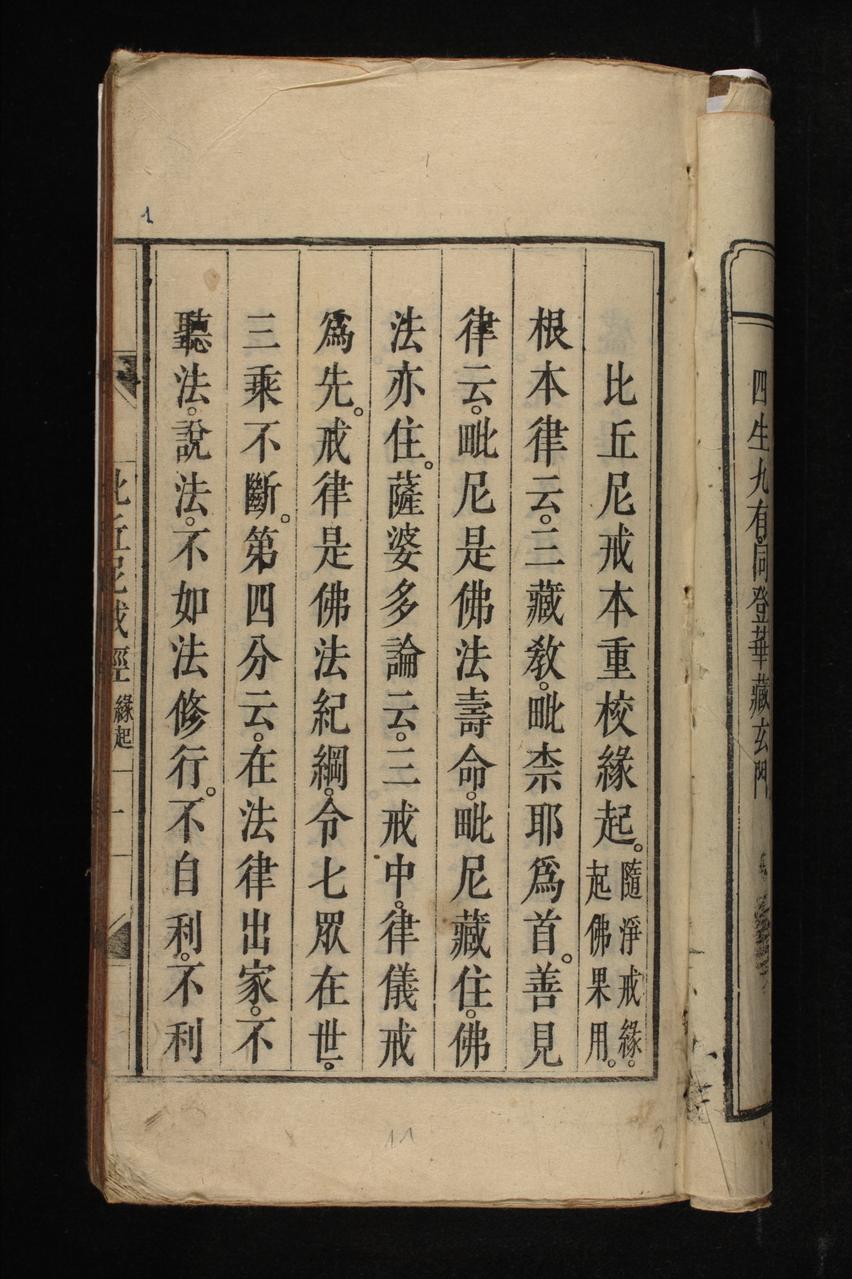 四生九有同登華藏玄門
比丘尼戒本重校緣起。隨淨戒緣。起佛果用。
根本律云。三藏敎。毗柰耶爲首。善見
律云。毗尼是佛法壽命。毗尼藏住。佛
法亦住。薩婆多論云。三戒中。律儀戒
爲先。戒律是佛法紀綱。令七眾在世。
三乘不斷。第四分云。在法律出家。不
聽法。說法。不如法修行。不自利。不利
比丘尼戒經 緣起 一
1
11